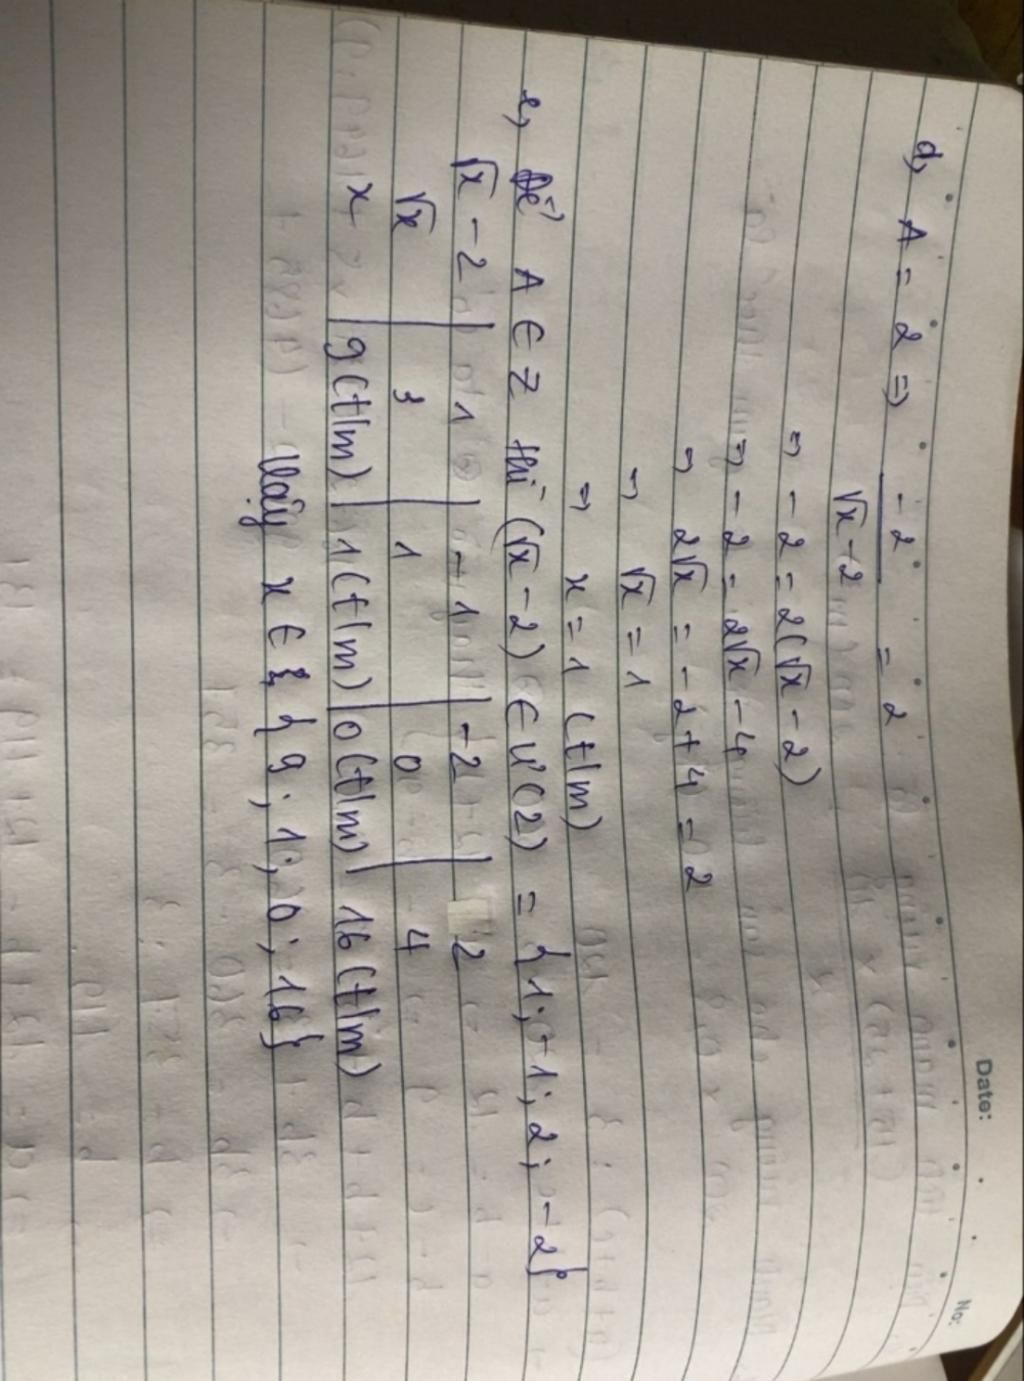 Date:
No:
d, A = 2 => -2 / √x - 2 = 2
=> -2 = 2(√x - 2)
=> -2 = 2√x - 4
=> 2√x = -2 + 4 = 2
=> √x = 1
=> x = 1 (t/m)
e, Để A ∈ Z thì (√x - 2) ∈ Ư(2) = {1; -1; 2; -2}
√x - 2 | 1 | -1 | -2 | 2
√x | 3 | 1 | 0 | 4
x | 9 (t/m) | 1 (t/m) | 0 (t/m) | 16 (t/m)
Vậy x ∈ {9; 1; 0; 16}